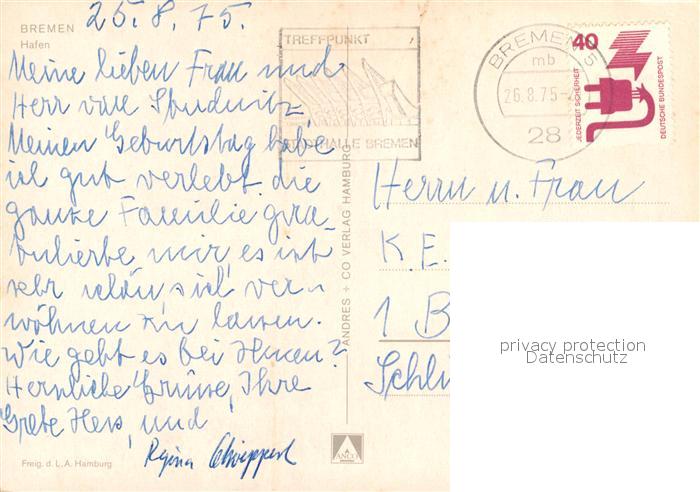 BREMEN
Hafen
25.8.75.
Meine lieben Frau und
Herr von Studnitz,
Meinen Geburtstag habe
ich gut verlebt. die
ganze Familie gra-
tulierte mir, es ist
sehr schön, sich ver-
wöhnen zu lassen.
Wie geht es bei Ihnen?
Herzliche Grüsse, Ihre
Grete Hess, und
Regina
Freig. d. L.A. Hamburg
ANDRES + CO VERLAG HAMBURG
ANCO
TREFFPUNKT
STADTHALLE BREMEN
BREMEN 5
mb
26.8.75-
28
40
JEDERZEIT SICHERHEIT
DEUTSCHE BUNDESPOST
Herrn u. Frau
K. E.
1 B
Schli
privacy protection
Datenschutz